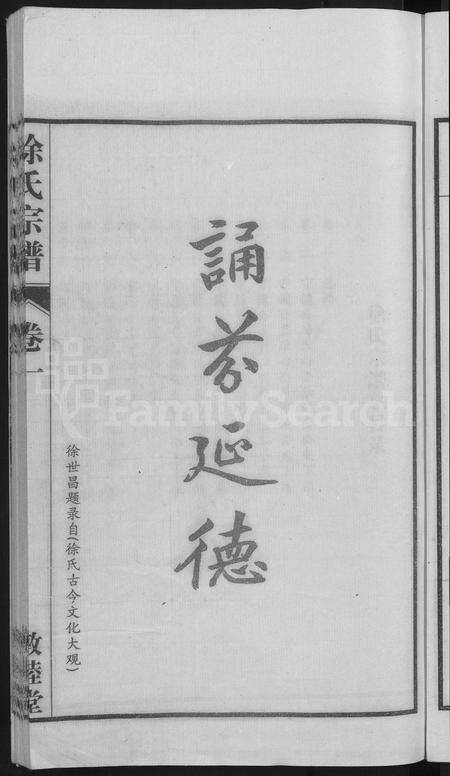 誦芬延德
徐世昌题录自(徐氏古今文化大观)
徐氏宗譜
卷一
敦睦堂
FamilySearch